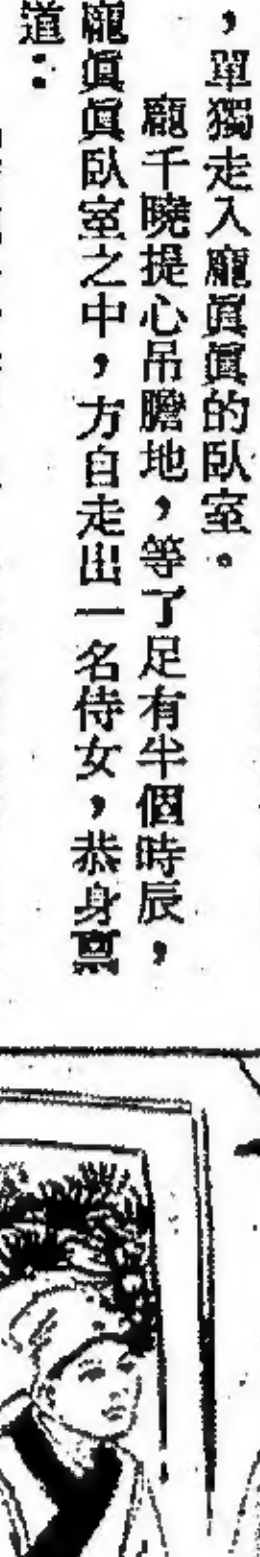 ，單獨走入龐眞眞的臥室。
龐千曉提心吊膽地，等了足有半個時辰，
龐眞眞臥室之中，方自走出一名侍女，恭身禀
道：